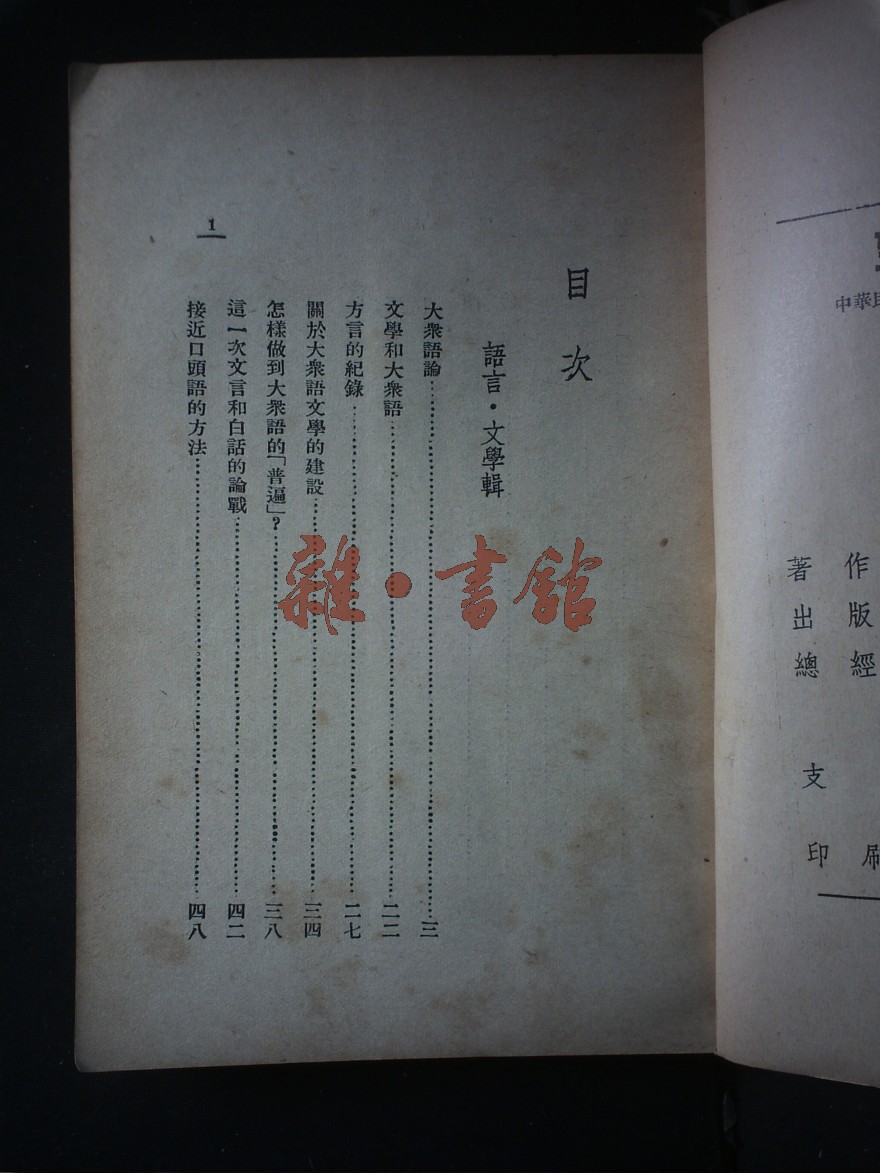 目次
語言・文學輯
大衆語論……三
文學和大衆語……二二
方言的紀錄……二七
關於大衆語文學的建設……三四
怎樣做到大衆語的「普遍」？……三八
這一次文言和白話的論戰……四二
接近口頭語的方法……四八
1
雜・書館
中華民
著作
出版
總經
支
印刷